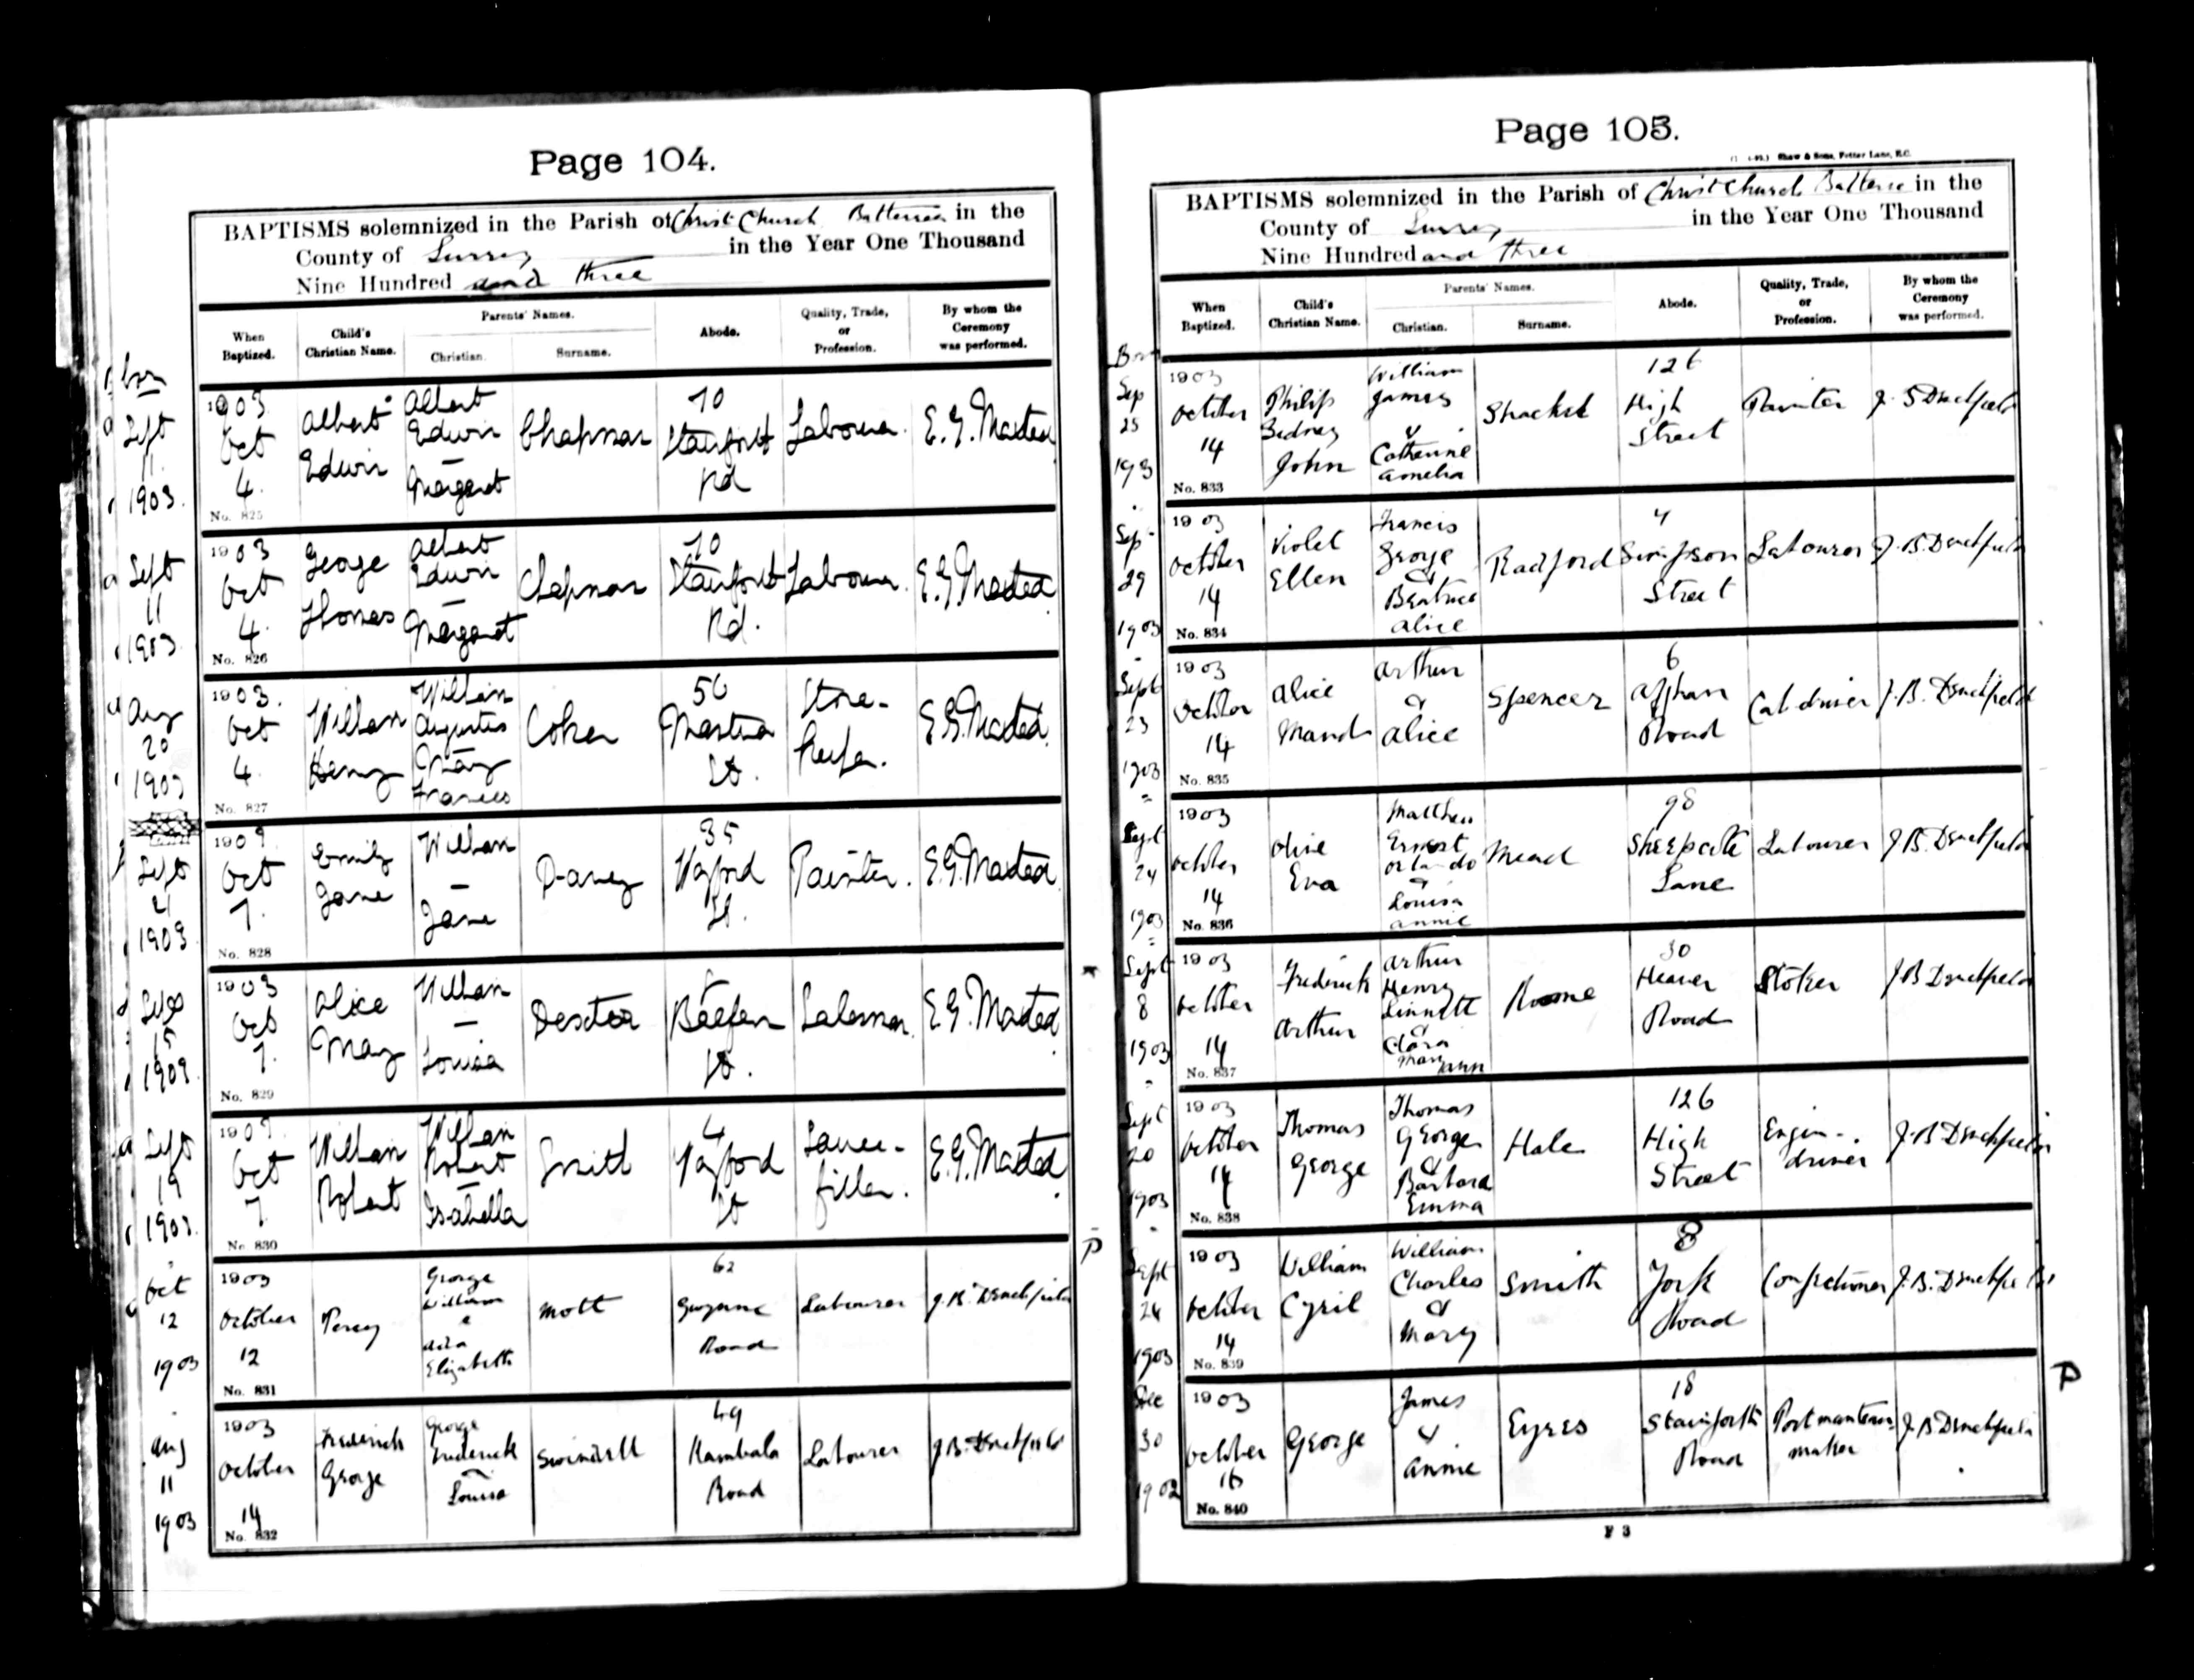 Page 104.
BAPTISMS solemnized in the Parish of Christ Church Battersea in the
County of Surrey in the Year One Thousand
Nine Hundred and three
When Baptized. Child's Christian Name. Parents' Names. Christian. Surname. Abode. Quality, Trade, or Profession. By whom the Ceremony was performed.
born
Sept 11 1903 1903 Oct 4 Albert Edwin Albert Edwin – Margaret Chapman 70 Rd Labourer. E.G. Masted
No. 825
Sept 11 1903 1903 Oct 4 George Thomas Albert Edwin – Margaret Chapman 70 Rd. Labourer. E.G. Masted
No. 826
Aug 20 1903 1903. Oct 4 William Henry William Augustus – Mary Frances Coker St. Store-keeper. E.G. Masted
No. 827
Sept 21 1903 1903 Oct 7. Emily Jane William – Jane Davey 35 Wayford St. Painter. E.G. Masted
No. 828
15 1903 1903 Oct 7. Alice May William – Louisa Dexter St. E.G. Masted
No. 829
Sept 19 1903 1903 Oct 7 William Robert William Robert – Isabella Smith 4 Wayford St E.G. Masted
No. 830
Oct 12 1903 1903 October 12 Percy George William & Ada Elizabeth Mott 62 Gwynne Road Labourer
No. 831
Aug 11 1903 1903 October 14 Frederick George George Frederick – Louisa Swindell 49 Kambala Road Labourer
No. 832
P
Page 105.
Shaw & Sons, Fetter Lane, E.C.
BAPTISMS solemnized in the Parish of Christ Church Battersea in the
County of Surrey in the Year One Thousand
Nine Hundred and three
When Baptized. Child's Christian Name. Parents' Names. Christian. Surname. Abode. Quality, Trade, or Profession. By whom the Ceremony was performed.
Born
Sep 25 1903 October 14 Philip Sidney John William James & Catherine Amelia 126 High Street Painter
No. 833
Sep 29 1903 1903 October 14 Violet Ellen Francis George & Beatrice Alice Radford 4 Simpson Street Labourer
No. 834
Sept 23 1903 1903 October 14 Alice Maud Arthur & Alice Spencer 6 Afghan Road Cab driver
No. 835
Sept 24 1903 1903 October 14 Olive Eva Matthew Ernest Orlando & Louisa Annie Mead 98 Sheepcote Lane Labourer
No. 836
Sept 8 1903 1903 October 14 Frederick Arthur Arthur Henry Linnett & Clara Mary Ann Roome 30 Heaver Road Stoker
No. 837
Sept 20 1903 1903 October 14 Thomas George Thomas George & Barbara Emma Hale 126 High Street Engine-driver
No. 838
Sept 24 1903 1903 October 14 William Cyril William Charles & Mary Smith 8 York Road Confectioner
No. 839
Dec 30 1902 1903 October 16 George James & Annie Eyres 18 Stainforth Road Portmanteau maker
No. 840
P
F 3